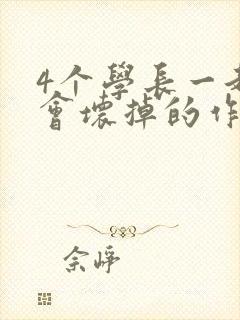 4个學長一起
會壞掉的作
余崢